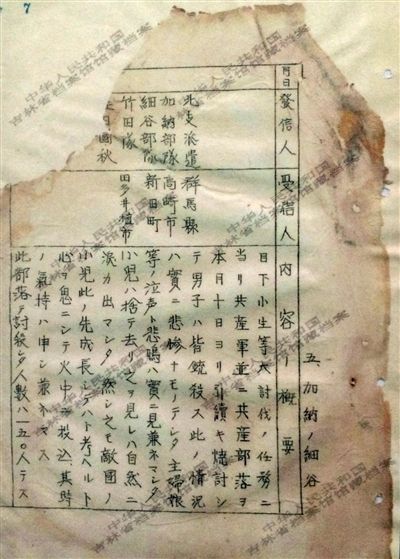 7
五、加納ノ細谷
月日
發信人
受信人
內容ノ梗要
北支派遣
加納部隊
細谷部隊
竹田隊
田国秋
群馬縣
高崎市
新田町
田多井植市
目下小生等大討伐ノ任務ニ
当リ共産軍並ニ共産部落ヲ
本月十日ヨリ引續キ焼討シ
テ男子ハ皆銃殺ス此ノ情況
ハ實ニ悲惨ナモノデシタ主婦娘
等ノ泣声ト悲鳴ハ實ニ見兼ネマシタ
小児ハ捨テ去リ之ヲ見レハ自然ニ
涙カ出マシタ然シ之モ敵國ノ
小児此ノ先成長シテハト考ヘルト
心ヲ鬼ニシテ火中ニ投込ム其時
ノ氣持ハ申シ兼ネマス
此部落デ討殺シタ人數ハ一五〇人テス
中华人民共和国
吉林省档案馆馆藏档案